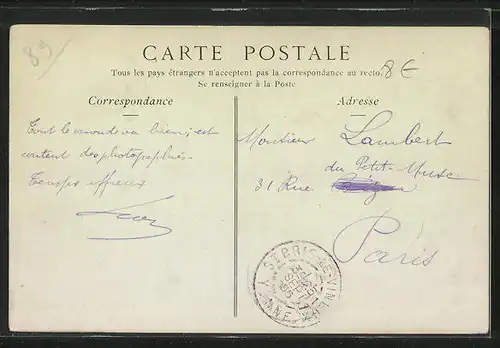 89
CARTE POSTALE
8€
Tous les pays étrangers n'acceptent pas la correspondance au recto.
Se renseigner à la Poste
Correspondance
Tout le monde va bien, est
content des photographies.
Temps affreux
Adresse
Monsieur Lambert
du Petit-Musc
31 Rue
Paris
ST BRIS-LE-VINEUX
YONNE